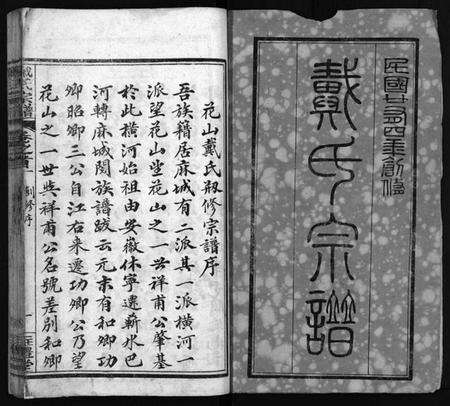 民國廿四年創修
戴氏宗譜
花山戴氏剏修宗譜序
吾族籍居麻城有二派其一派橫河一
派望花山堂花山之一世祥甫公肇基
於此橫河始祖由安徽休寧遷蘄水巴
河轉麻城閱族譜跋云元末有和卿功
卿昭卿三公自江右來遷功卿公乃望
花山之一世與祥甫公名號差別和卿
戴氏宗譜
卷首
創修序
一